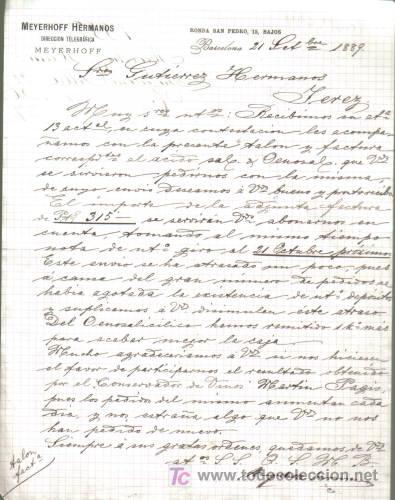 MEYERHOFF HERMANOS
DIRECCION TELEGRÁFICA
MEYERHOFF
RONDA SAN PEDRO, 13, BAJOS
Barcelona 21 Setbre 1889
Sres Gutierrez Hermanos
Jerez
Muy sres ntros: Recibimos su atª
13 actal, en cuya contestacion les acompa-
ñamos con la presente talon y factura
correspte al acido sal. & Oenosal, que Vds
se sirvieron pedirnos con la misma,
de cuyo envio deseamos á Vds bueno y pronto recibo
El importe de la adjunta factura
de Pts 315 se servirán Vds abonarnos en
cuenta tomando al mismo tiempo
nota de nto giro al 21 Octubre próximo
Este envio se ha atrasado un poco, pues
á causa del gran número de pedidos se
habia agotada la existencia de nto depósito
y suplicamos á Vds dimulen este atraso
Del Oenosalicilico hemos remitido 1 Kº mas
para acabar mejor la caja
Mucho agradeceriamos á Vds si nos hiciesen
el favor de participarnos el resultado obtenido
por el Conservador de Vinos Martin Pagis
pues los pedidos del mismo aumentan cada
dia, y nos estraña algo que Vds no nos
han pedido de nuevo.
Siempre á sus gratas órdenes, quedamos de Vds
atos S.S. Q. B. S. M.
Talon
facta
TC todocoleccion